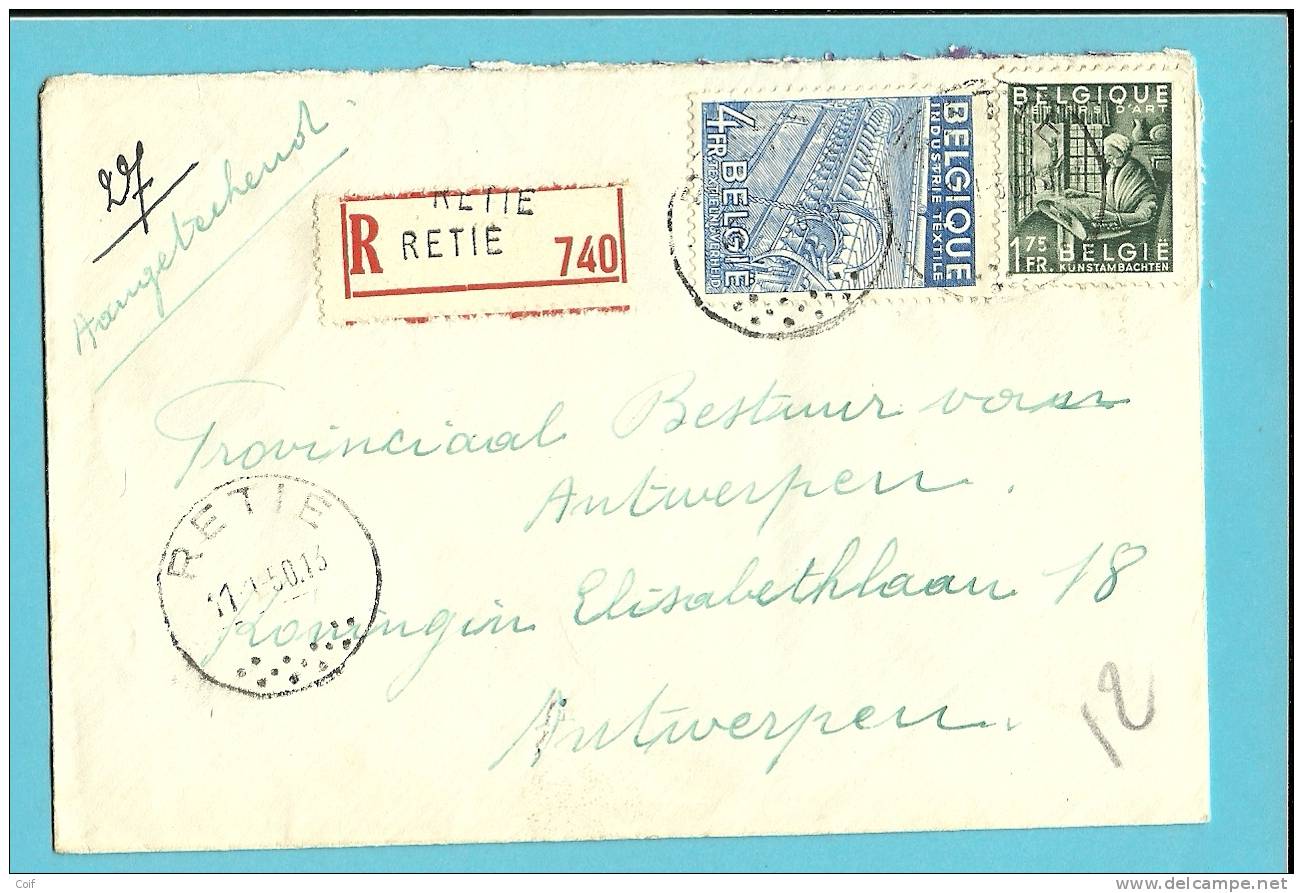 27
Aangetekend
RETIE
R RETIE 740
4 FR. BELGIË
TEXTIELNIJVERHEID
BELGIQUE
INDUSTRIE TEXTILE
BELGIQUE
METIERS D'ART
1 75 FR. BELGIË
KUNSTAMBACHTEN
Provinciaal Bestuur van
Antwerpen.
RETIE
Koningin Elisabethlaan 18
Antwerpen.
12
Coif
delcampe.net